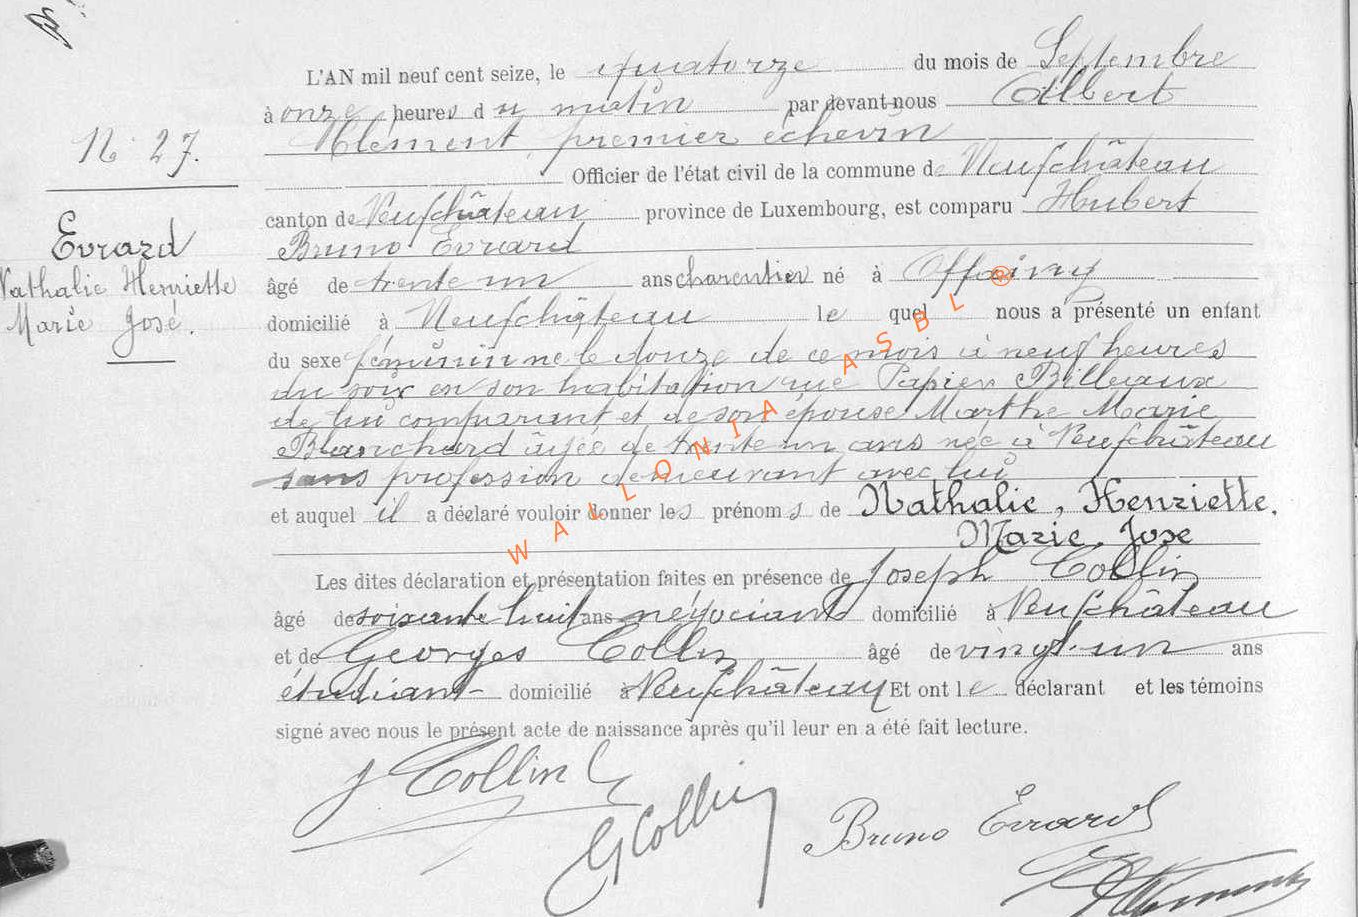 N° 27.
Evrard
Nathalie Henriette
Marie José.
L'AN mil neuf cent seize, le quatorze du mois de Septembre
à onze heures du matin par devant nous Albert
Clément, premier échevin
Officier de l'état civil de la commune de Neufchâteau
canton de Neufchâteau province de Luxembourg, est comparu Hubert
Bruno Evrard
âgé de trente un ans charentier né à Offaing
domicilié à Neufchâteau le quel nous a présenté un enfant
du sexe féminin né le douze de ce mois à neuf heures
du soir en son habitation rue Papien Billeaux
de lui comparant et de son épouse Marthe Marie
Blanchard âgée de trente un ans née à Neufchâteau
sans profession demeurant avec lui
et auquel il a déclaré vouloir donner les prénoms de Nathalie, Henriette,
Marie, Jose
Les dites déclaration et présentation faites en présence de Joseph Collin
âgé de soixante huit ans négociant domicilié à Neufchâteau
et de Georges Collin âgé de vingt-un ans
étudiant domicilié à Neufchâteau Et ont le déclarant et les témoins
signé avec nous le présent acte de naissance après qu'il leur en a été fait lecture.
J Collin
G Collin
Bruno Evrard
WALLONIA ASBL ®